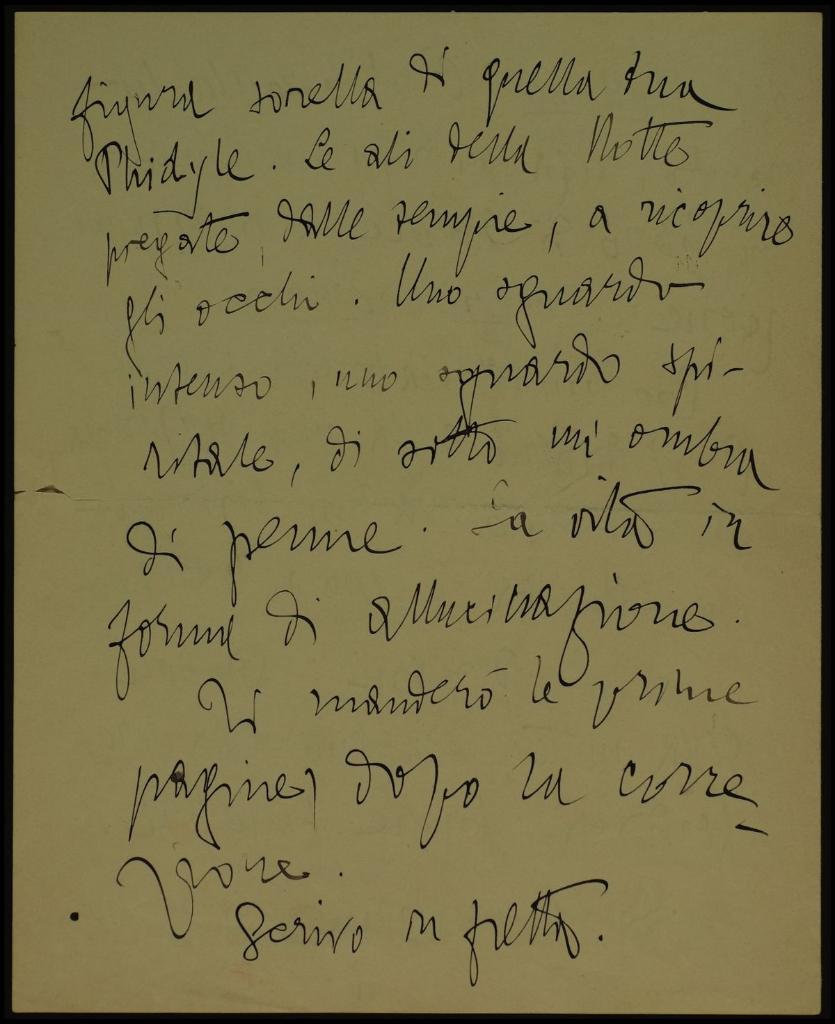 figura sorella di quella tua
Phidyle. Le ali della Notte
piegate, dalle tempie, a ricoprire
gli occhi. Uno sguardo
intenso, uno sguardo spi-
ritale, di sotto un' ombra
di penne. La vita in
forma di allucinazione.
Ti manderò le prime
pagine, dopo la corre-
zione.
Scrivo in fretta.